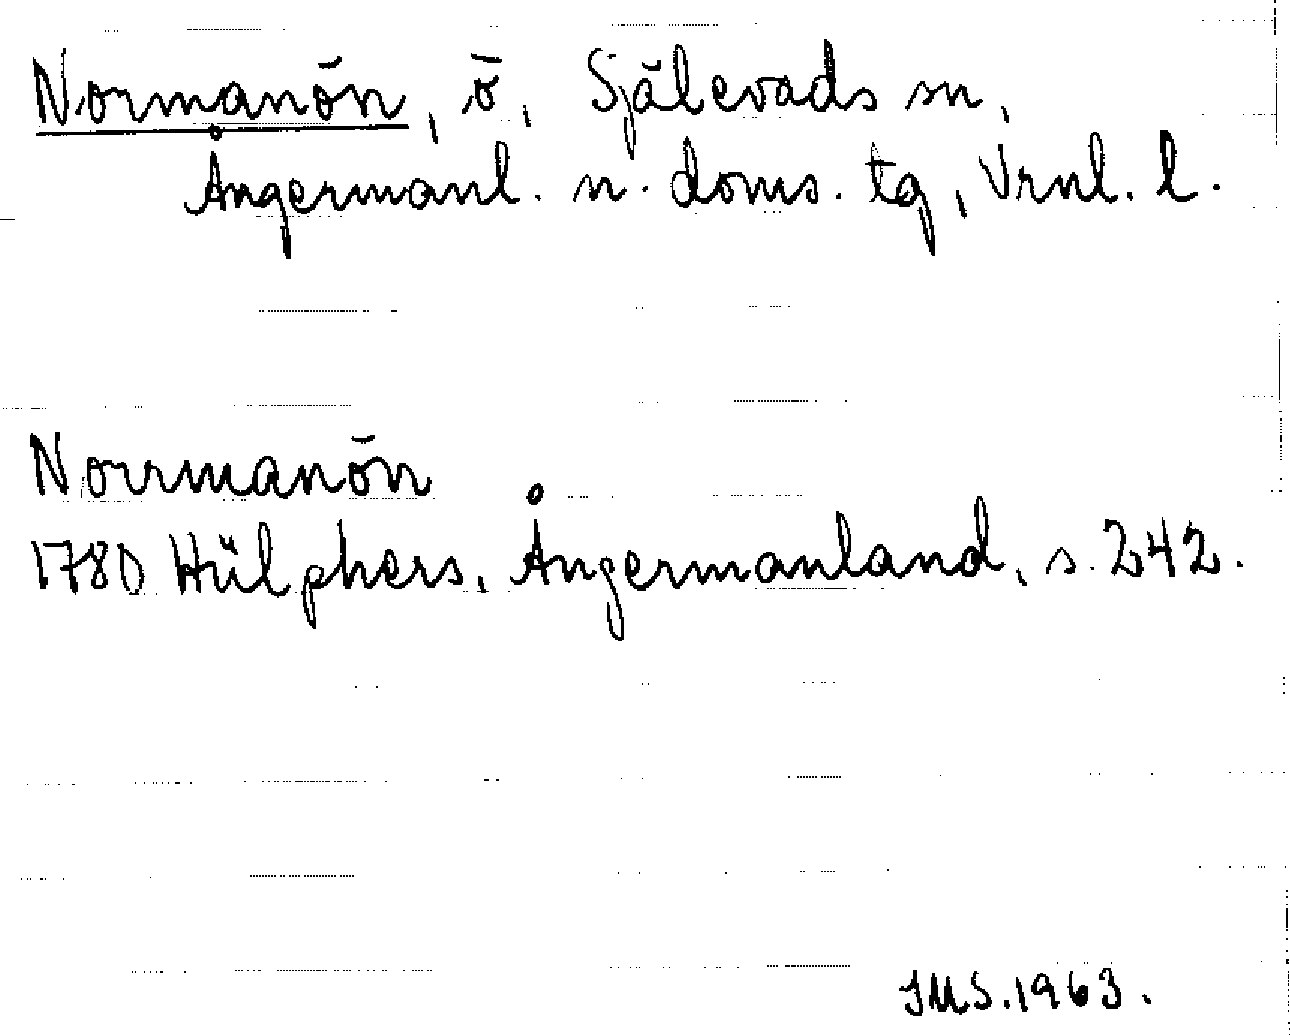 Normanön, ö, Själevads sn,
Ångermanl. n. doms. tg, Vrnl. l.
Norrmanön
1780 Hülphers, Ångermanland, s. 242.
IMS. 1963.